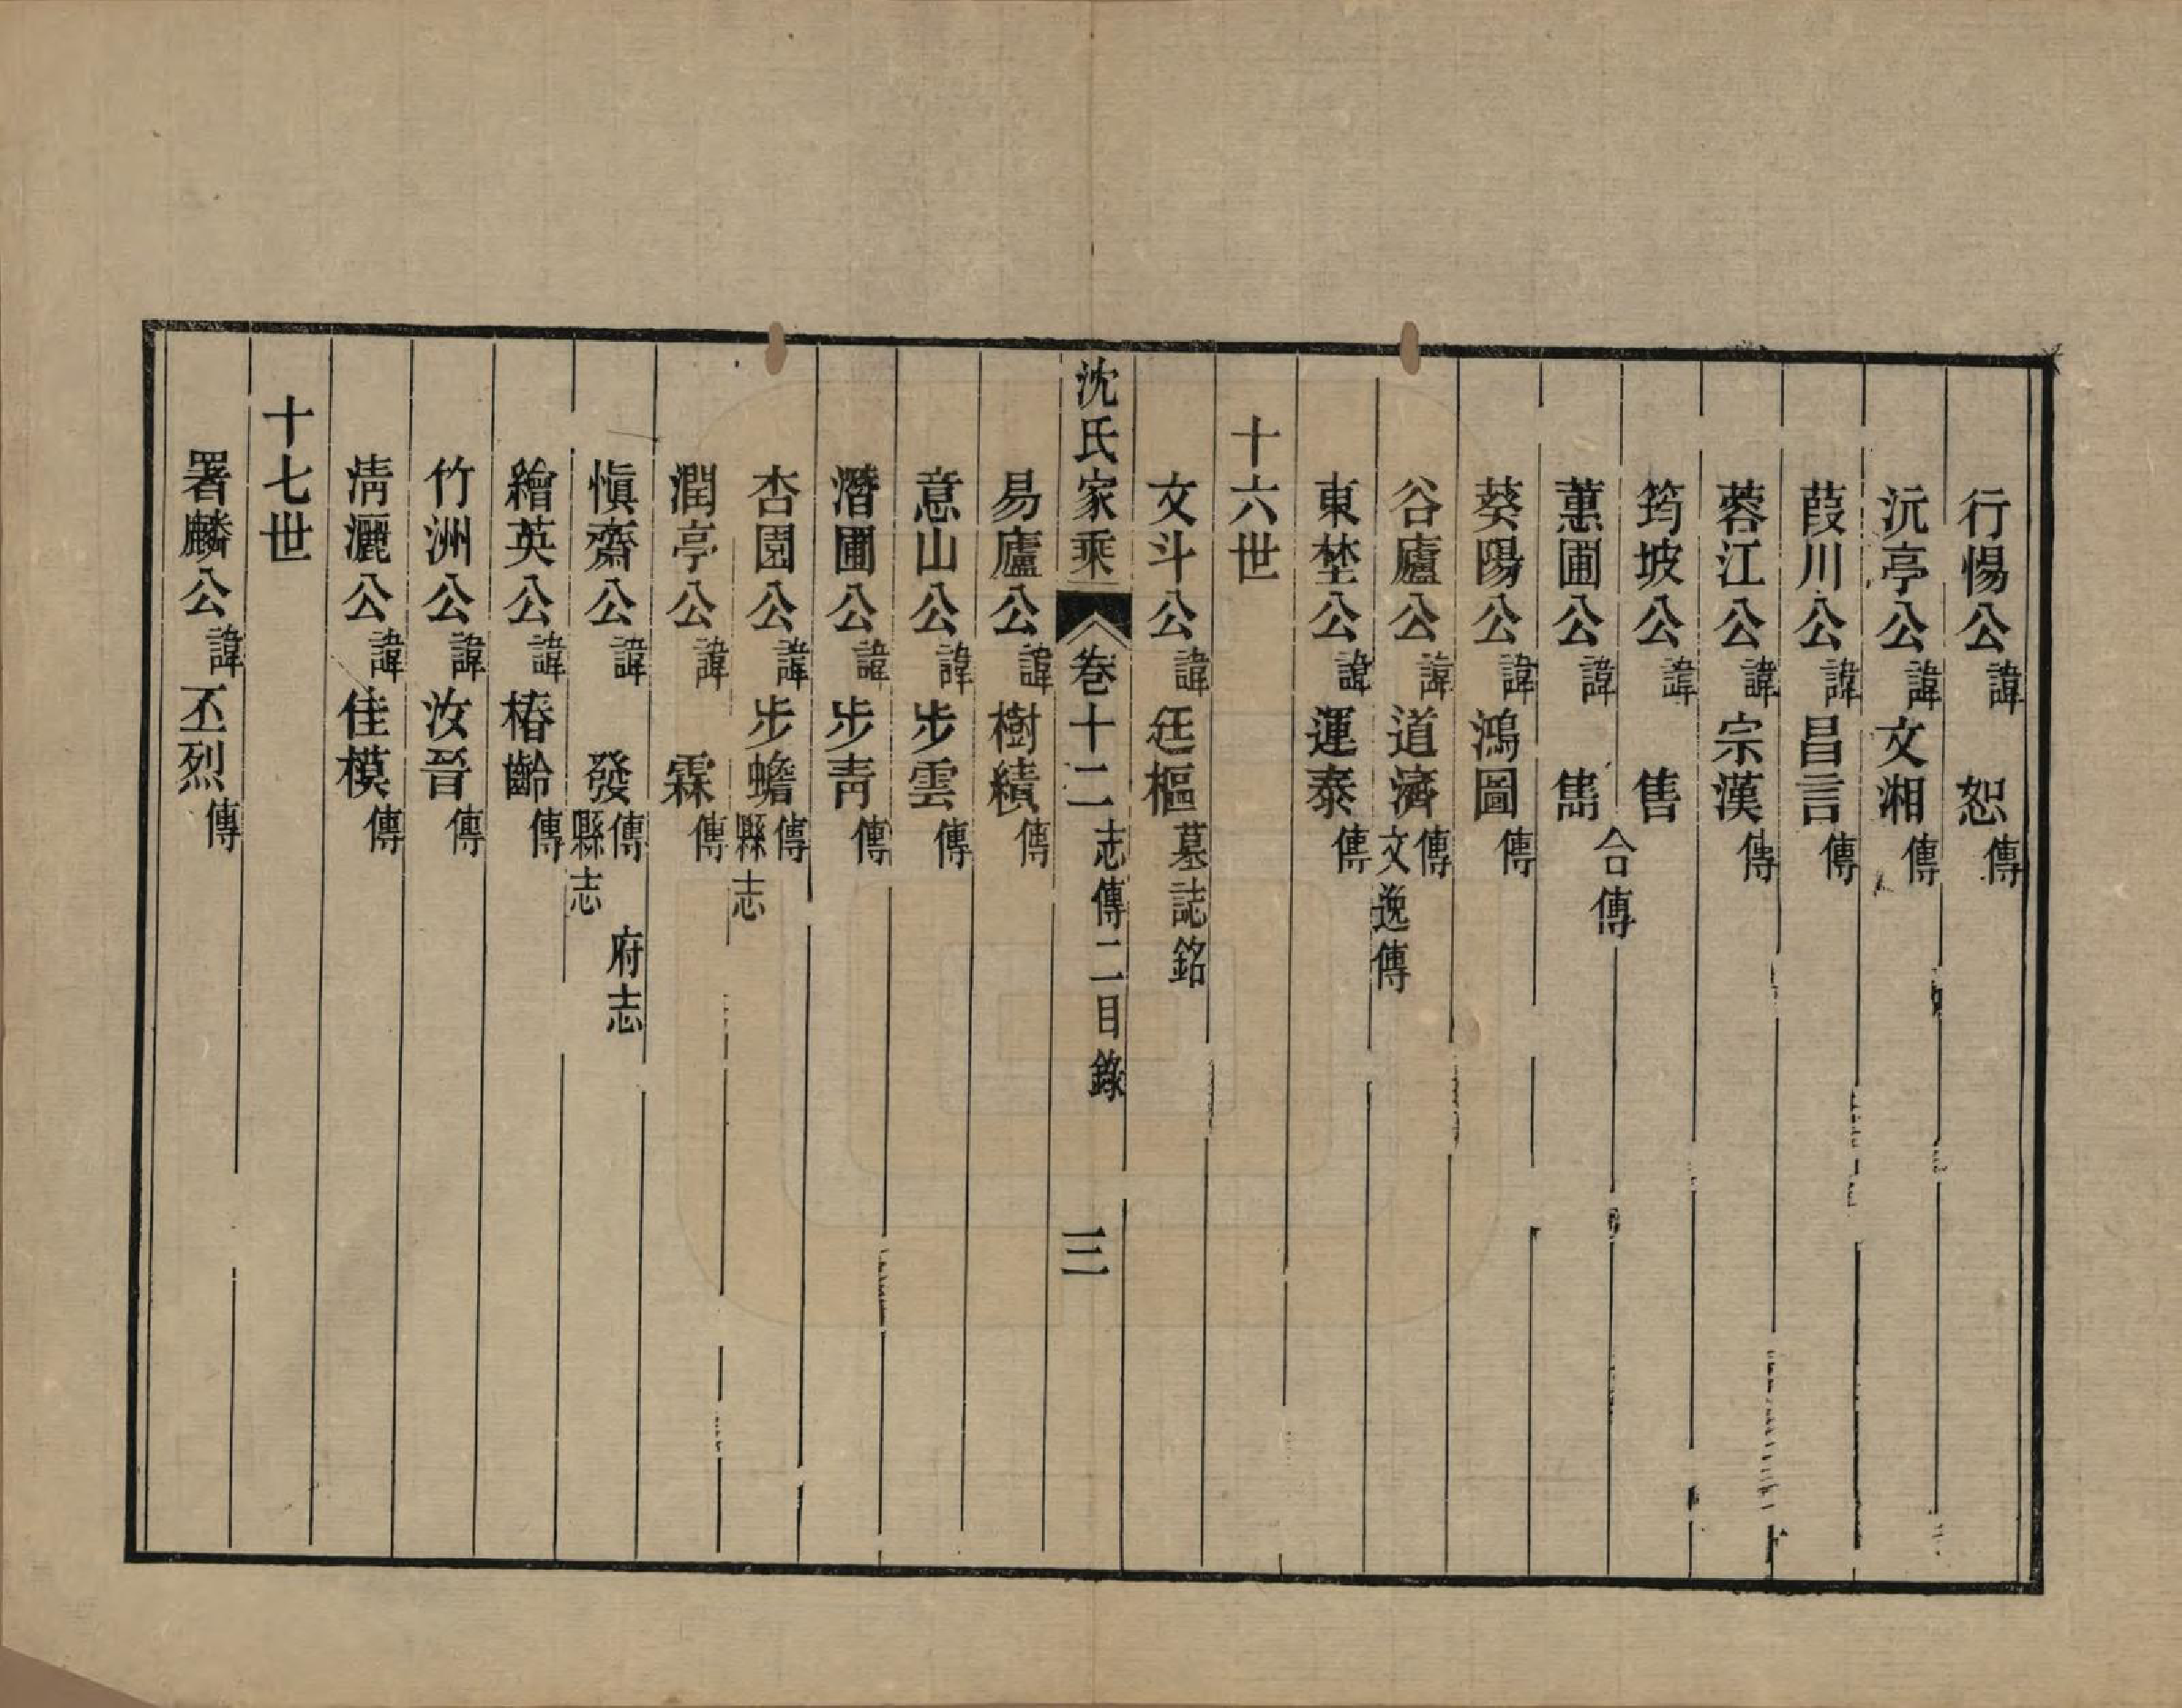 行惕公諱恕傳
沅亭公諱文湘傳
葭川公諱昌言傳
蓉江公諱宗漢傳
筠坡公諱售
蕙圃公諱雋合傳
葵陽公諱鴻圖傳
谷廬公諱道濟傳文逸傳
東埜公諱運泰傳
十六世
文斗公諱廷樞墓誌銘
沈氏家乘卷十二志傳二目錄三
易廬公諱樹績傳
意山公諱步雲傳
潛圃公諱步靑傳
杏園公諱步蟾傳縣志
潤亭公諱霖傳
愼齋公諱發傳府志縣志
繪英公諱椿齡傳
竹洲公諱汝晉傳
淸灑公諱佳模傳
十七世
署麟公諱丕烈傳